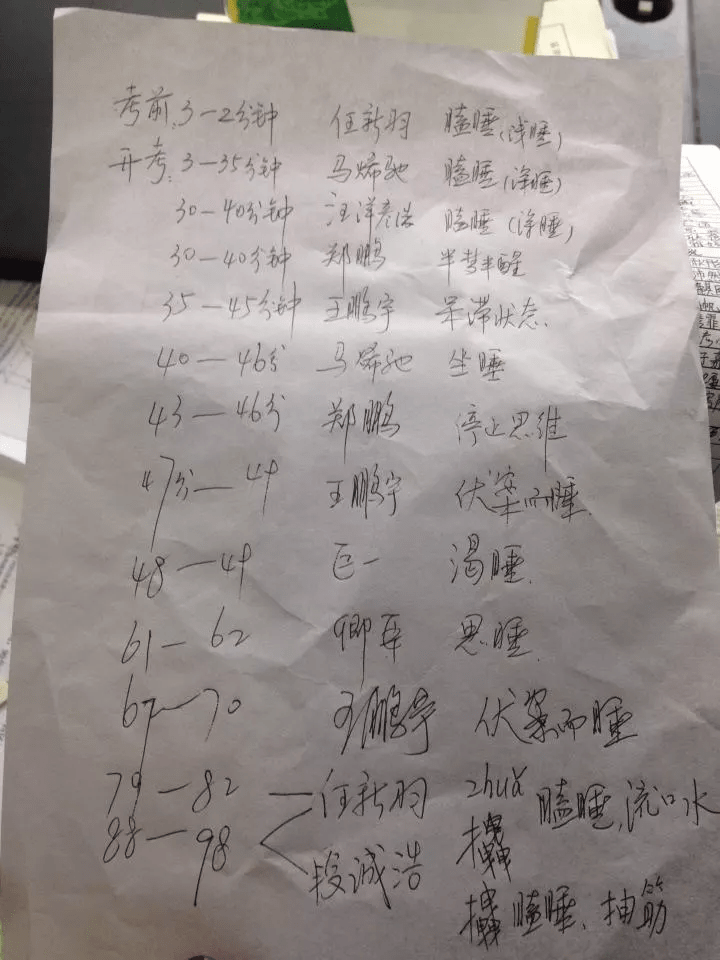 考前:3—2分钟 任新羽 瞌睡(浅睡)
开考:3—35分钟 马烯驰 瞌睡(深睡)
30—40分钟 汪洋彦浩 瞌睡(深睡)
30—40分钟 郑鹏 半梦半醒
35—45分钟 王鹏宇 呆滞状态.
40—46分 马烯驰 坐睡
43—46分 郑鹏 停止思维
47分—49 王鹏宇 伏案而睡
48—49 巨一 渴睡.
61—62 卿 思睡.
67—70 王鹏宇 伏案而睡
zhuā
79—82 任新羽 瞌睡,流口水
88—98 段诚浩 瞌睡、抽筋